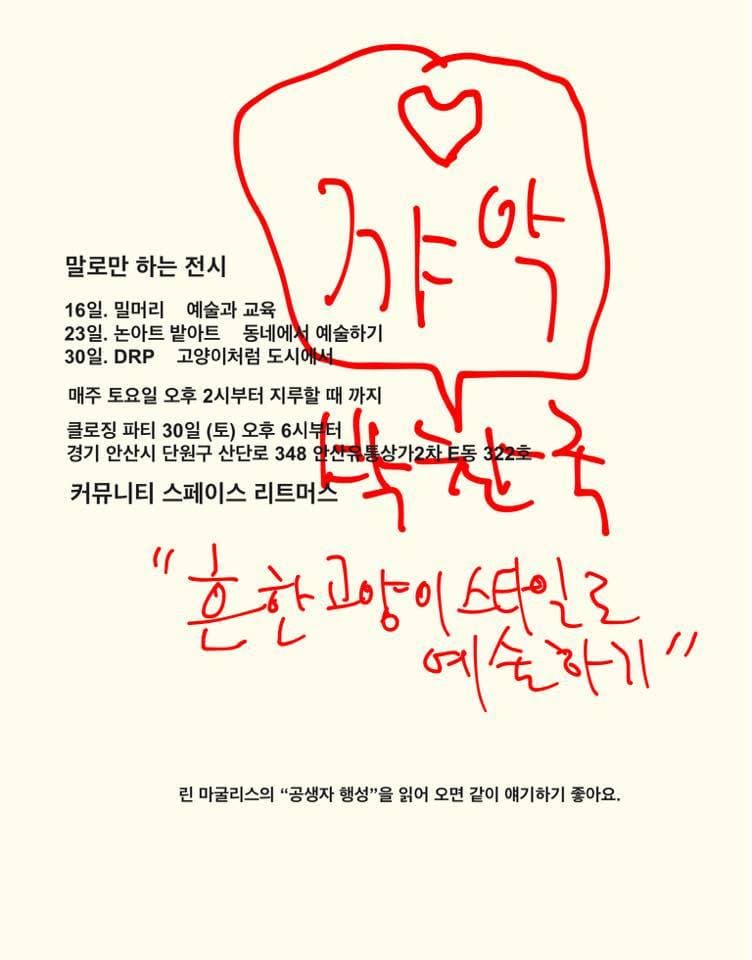 꺄악
말로만 하는 전시
16일. 밀머리 예술과 교육
23일. 논아트 밭아트 동네에서 예술하기
30일. DRP 고양이처럼 도시에서
매주 토요일 오후 2시부터 지루할 때 까지
클로징 파티 30일 (토) 오후 6시부터
경기 안산시 단원구 산단로 348 안산유통상가2차 E동 322호
커뮤니티 스페이스 리트머스
박찬국
"흔한 고양이 스타일로
예술하기"
린 마굴리스의 “공생자 행성”을 읽어 오면 같이 얘기하기 좋아요.